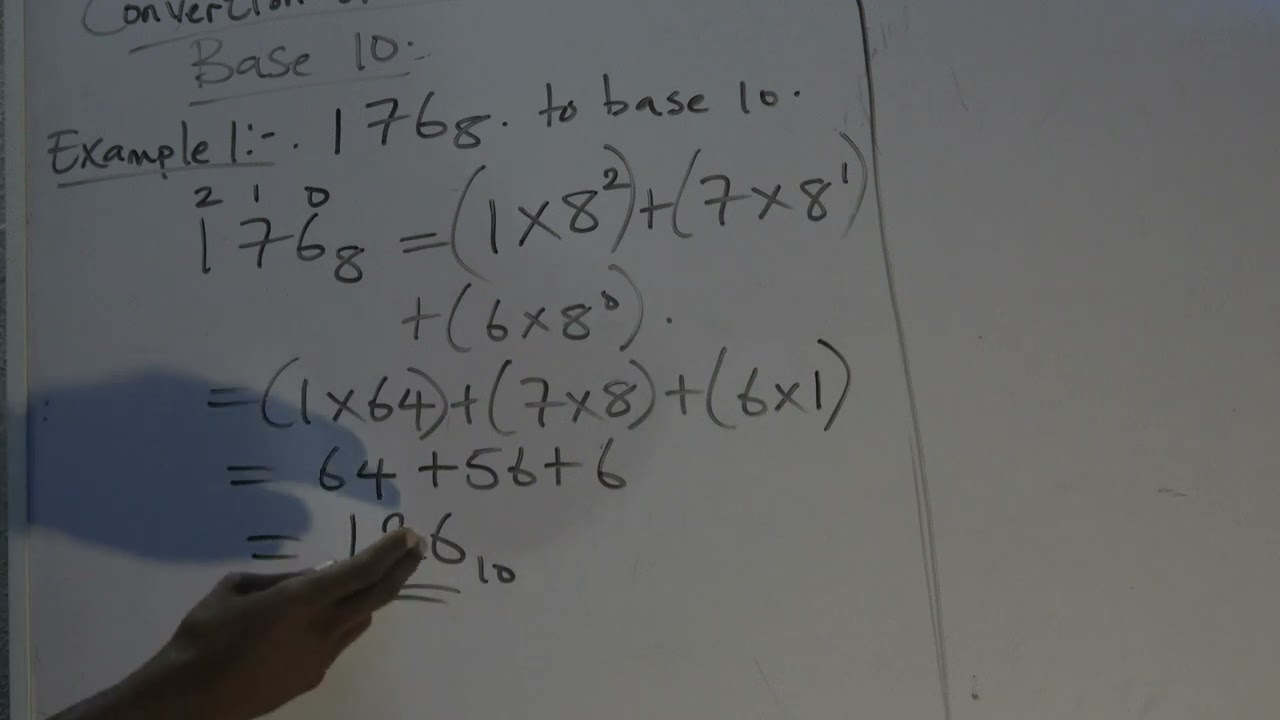 Convertion
Base 10:-
Example 1:-. 176₈. to base 10.
2 1 0
176₈ = (1×8²)+(7×8¹)
+(6×8⁰).
=(1×64)+(7×8)+(6×1)
= 64 +56+6
= 126₁₀